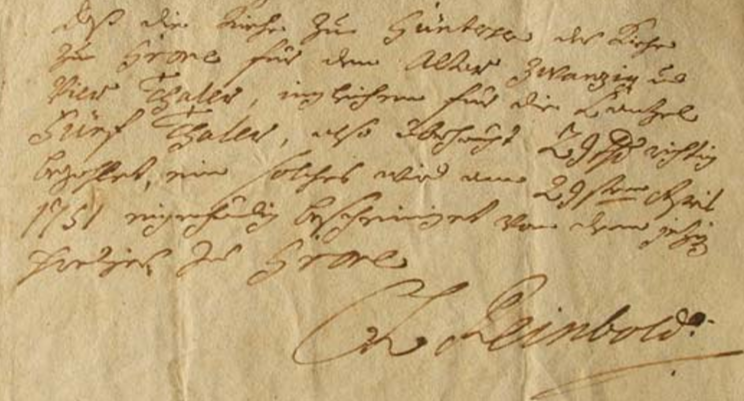 daß die Kirche zu Güntersen der Kirche
zu Grone für den Altar zwanzig und
Vier Thaler, ingleichen für die Cantzel
Fünf Thaler, also überhaupt 29 rthl richtig
bezahlet, ein solches wird am 29sten April
1751 eigenhändig bescheiniget von dem jetzig
Prediger zu Grone
Reinbold.